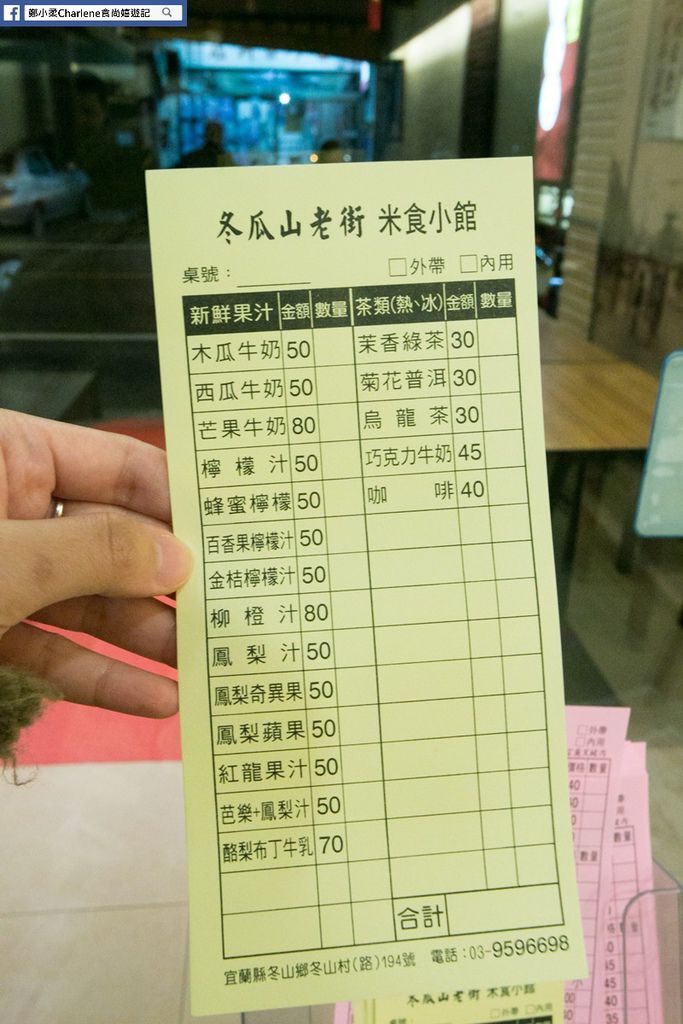 鄭小柔Charlene食尚嬉遊記
冬瓜山老街 米食小館
桌號：
□外帶 □內用
新鮮果汁 金額 數量 茶類(熱、冰) 金額 數量
木瓜牛奶 50 茉香綠茶 30
西瓜牛奶 50 菊花普洱 30
芒果牛奶 80 烏龍茶 30
檸檬汁 50 巧克力牛奶 45
蜂蜜檸檬 50 咖啡 40
百香果檸檬汁 50
金桔檸檬汁 50
柳橙汁 80
鳳梨汁 50
鳳梨奇異果 50
鳳梨蘋果 50
紅龍果汁 50
芭樂+鳳梨汁 50
酪梨布丁牛乳 70
合計
宜蘭縣冬山鄉冬山村(路)194號 電話：03-9596698
□外帶
□內用
價格 數量
40
30
數量
冬瓜山老街 米食小館
□外帶 □內用
桌號：
45
45
40
35